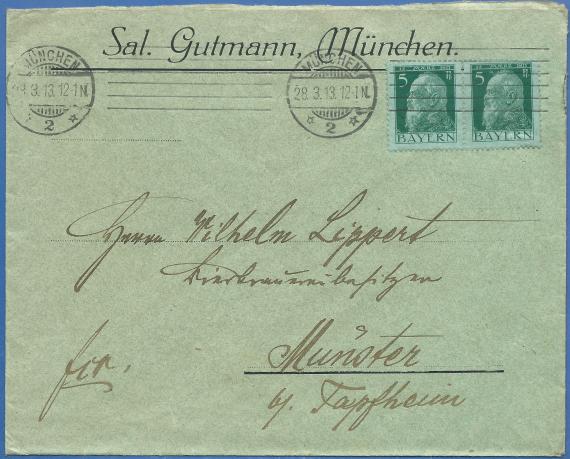 Sal. Gutmann, München.
MÜNCHEN
28.3.13. 12-1 N.
2
MÜNCHEN
28.3.13. 12-1 N.
2
5 5
BAYERN BAYERN
Herrn Wilhelm Lippert
Bierbrauereibesitzer
Münster
b/. Tapfheim